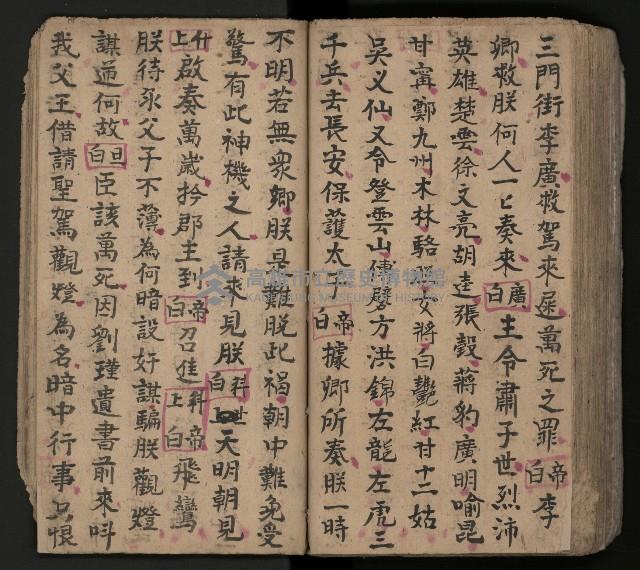 三門街李廣救駕來遲萬死之罪帝白李
卿救朕何人一匕奏來廣白主令肅子世烈沛
英雄楚雲徐文亮胡逵張穀蔣豹廣明喻昆
甘甯鄭九州木林駱 女將白艷紅甘十二姑
吳又仙又令登雲山傅 方洪錦左龍左虎三
千兵去長安保護太 帝白據卿所奏朕一時
不明若無衆卿朕是難脫此禍朝中難免受
驚有此神機之人請來見朕科世白上天明朝見
什上啟奏萬歲扲郡主到帝白召進科上帝白飛鸞
朕待永父子不薄為何暗設奸謀騙朕觀燈
謀逆何故旦白臣該萬死因劉瑾遺書前來呌
我父王借請聖駕觀燈為名暗中行事只恨
高雄市立歷史博物館
KAOHSIUNG MUSEUM OF HISTORY